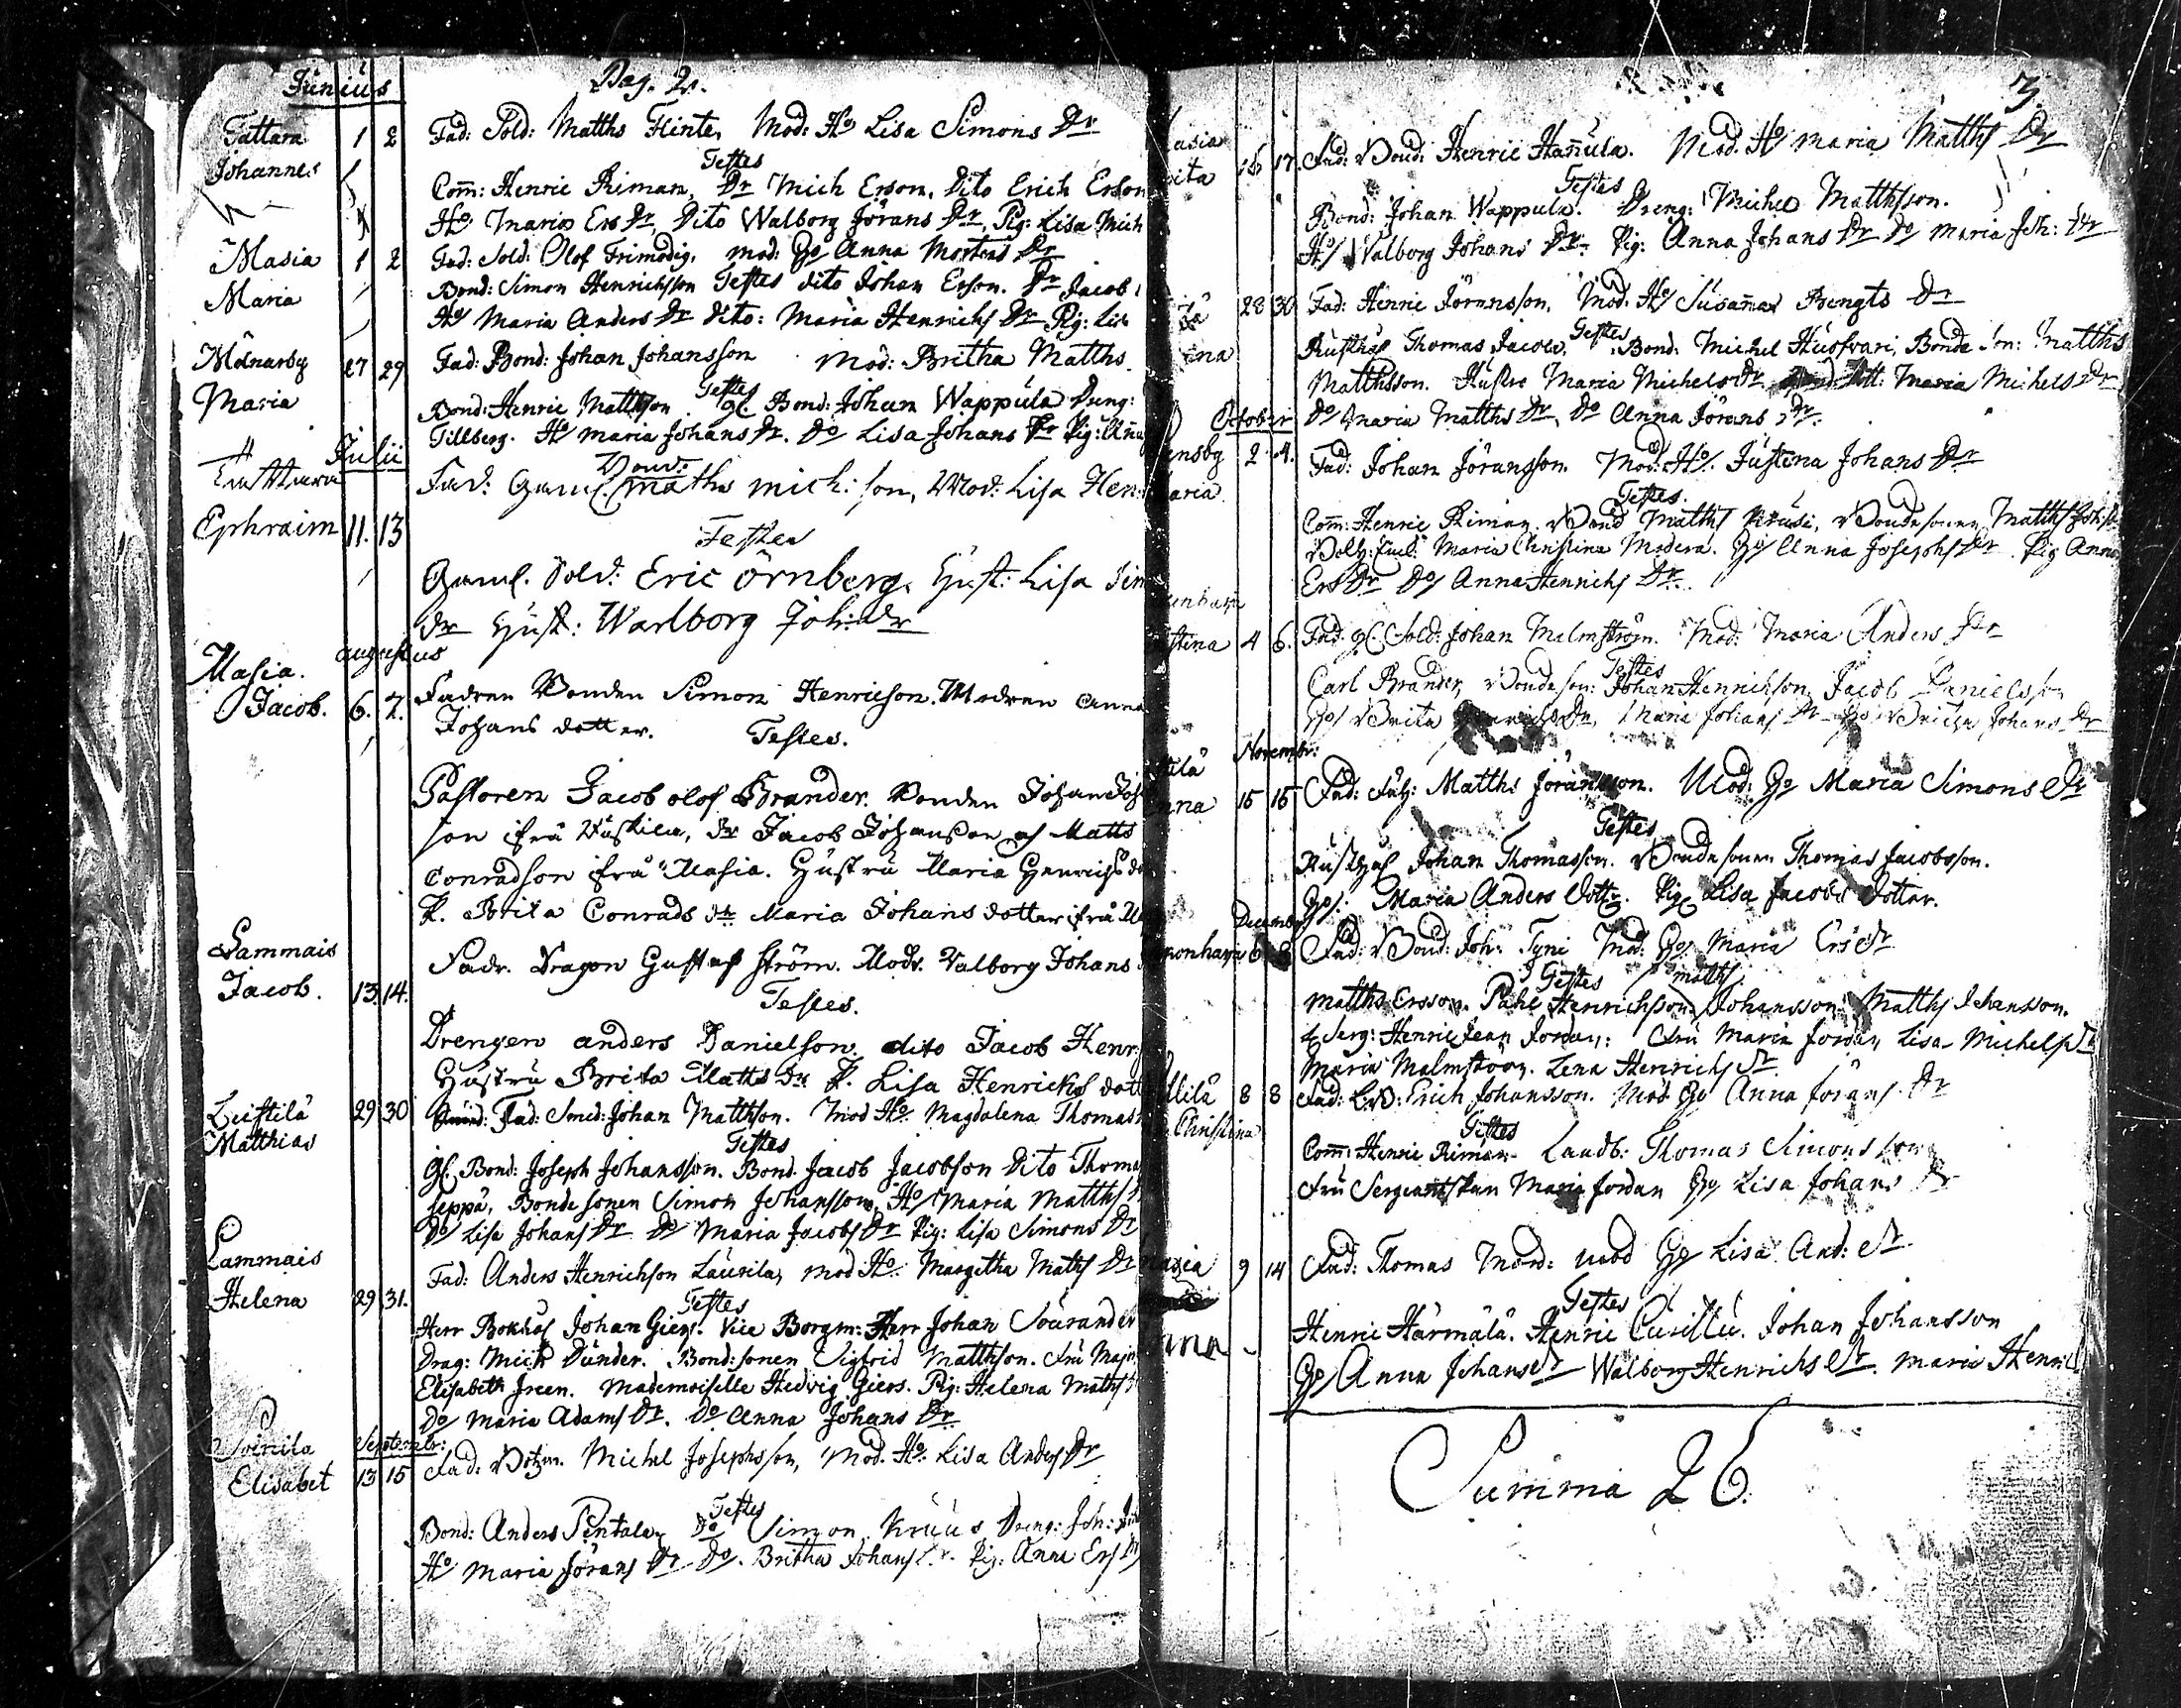 Junius
Pag. 2.
Tattara 1 2 Fad: Sold: Matths Flinte, Mod: Ho Lisa Simons Dr
Johannes
Testes
Com: Henric Riman, Dr Mich Erson, Dito Erich Erson
Ho Maria Ers Dr, Dito Walborg Jörans Dr, Pig: Lisa Mich
Masia 1 2 Fad: Sold: Olof Frimodig, mod: Ho Anna Mortens Dr
Maria
Bond: Simon Henrichsson Testes dito Johan Erson. Dr Jacob
Ho Maria Anders Dr Dito: Maria Henrichs Dr Pig: Lis
Månarby 27 29 Fad: Bond: Johan Johansson Mod: Britha Matths
Maria
Testes
Bond: Henric Matthson gl Bond: Johan Wappula Dreng:
Tillberg. Ho Maria Johans Dr. Do Lisa Johans Dr Pig: Anna
Julii
Fad: Gaml. Bond: Maths Mich: son, Mod: Lisa Hen
Ephraim 11. 13
Testes
Gaml. Sold: Eric Örnberg, Hust: Lisa Sim
dr Hust: Warlborg Joh: dr
Augustus
Masia.
Jacob. 6. 7. Fadren Bonden Simon Henricson. Modren Anna
Johans dotter. Testes.
Pastoren Jacob Olof Brander. Bonden Johan Joh
son ifrå Huskila, dr Jacob Johansson af Matts
Conradson ifrå Masia. Hustru Maria Henrichs do
P. Brita Conrads dr Maria Johans dotter ifrå M
Lammais
Jacob. 13. 14. Fadr. Dragon Gustaf Ström. Modr. Valborg Johans
Testes.
Drengen Anders Danielson, dito Jacob Henr:
Hustru Brita Matts Dr P. Lisa Henricks dott
Leistilä 29 30 Fad: Smed: Johan Matthson. Mod Ho Magdalena Thomas
Matthias
Testes
gl. Bond: Joseph Johansson. Bond: Jacob Jacobson Dito Thoma
seppä, Bonde sonen Simon Johansson, Ho Maria Matths
Do Lisa Johans Dr Do Maria Jacobs Dr Pig: Lisa Simons Dr
Lammais
Fad: Anders Henrichson Laurila, mod Ho: Margetha Maths Dr
Helena 29 31.
Testes
Herr Bokhål Johan Giers. Vice Borgm: Herr Johan Sourander
Drag: Mich Dunder. Bond: sonen Sigfrid Matthson. Fru Major
Elisabeth Green. Mademoiselle Hedvig Giers. Pig: Helena Maths
Do Maria Adams Dr. Do Anna Johans Dr.
Soinila Septembr:
Elisabet 13 15 Fad: Botzm. Michel Josephsson, Mod. Ho: Lisa Anders Dr
Testes
Bond: Anders Pentala, Do Simon Kruus Dreng: Joh:
Ho Maria Jörans Dr Do. Britha Johans Dr. Pig: Anna Ers Dr
3.
asia
ita 15 17. Fad: Bond: Henric Hañula. Mod: Ho Maria Matths Dr
Testes
Bond: Johan Wappula. Dreng: Michel Matthsson.
Ho Walborg Johans Dr: Pig: Anna Johans Dr Do Maria Joh: Dr
28 30 Fad: Henric Jöransson, Mod: Ho Susanna Bengts Dr
ina
Testes
Rusthål Thomas Jacobs, Bond: Michel Husfvari, Bonde son: Matths
Matthsson. Hustru Maria Michels Dr Maria Michels Dr
Do Maria Matths Dr, Do Anna Jörans Dr.
October
ensby 2. 4. Fad: Johan Jöransson. Mod: Ho. Justina Johans Dr
aria
Testes.
Com: Henric Riman. Bond Matths Krusi, Bondesonen Matths
Maria Christina Modera. Ho Anna Josephs Dr. Pig Anna
Ers Dr Do Anna Henrichs Dr.
stina 4 6. Fad: gl. Sold: Johan Malmström. Mod: Maria Anders Dr
Testes
Carl Brander, Bondeson: Johan Henrichson, Jacob Danielsson
Ho Brita Dr, Maria Johans Dr Ho Britha Johans Dr
Novembr:
tilä
nna 15 15 Fad: Matths Jöransson. Mod: Ho Maria Simons Dr
Testes
Rusthål Johan Thomasson. Bondesonen Thomas Jacobsson.
Ho: Maria Anders Dottr. Pig Lisa Jacobs Dotter.
December
6 8 Fad: Bond: Joh: Tyni Mod: Ho Maria Ers Dr
Testes
Matths Ersson. Påhl Henrichsson, Matths Johansson. Matths Johansson.
Serg: Henric Jean Jordan: Fru Maria Jordan Lisa Michels Dr
Maria Malmström. Lena Henrichs Dr
tilä 8 8 Fad: Erich Johansson. Mod Ho Anna Jörans Dr
Christina
Testes
Com: Henric Riman. Landb: Thomas Simonsson
Fru Sergeantskan Maria Jordan Ho Lisa Johans Dr
Masia 9 14 Fad: Thomas Mård: Mod Ho Lisa And: Dr
nna
Testes
Henric Härmälä. Henric Curillu. Johan Johansson
Ho Anna Johans Dr Walborg Henrichs Dr. Maria Henri
Summa 26.